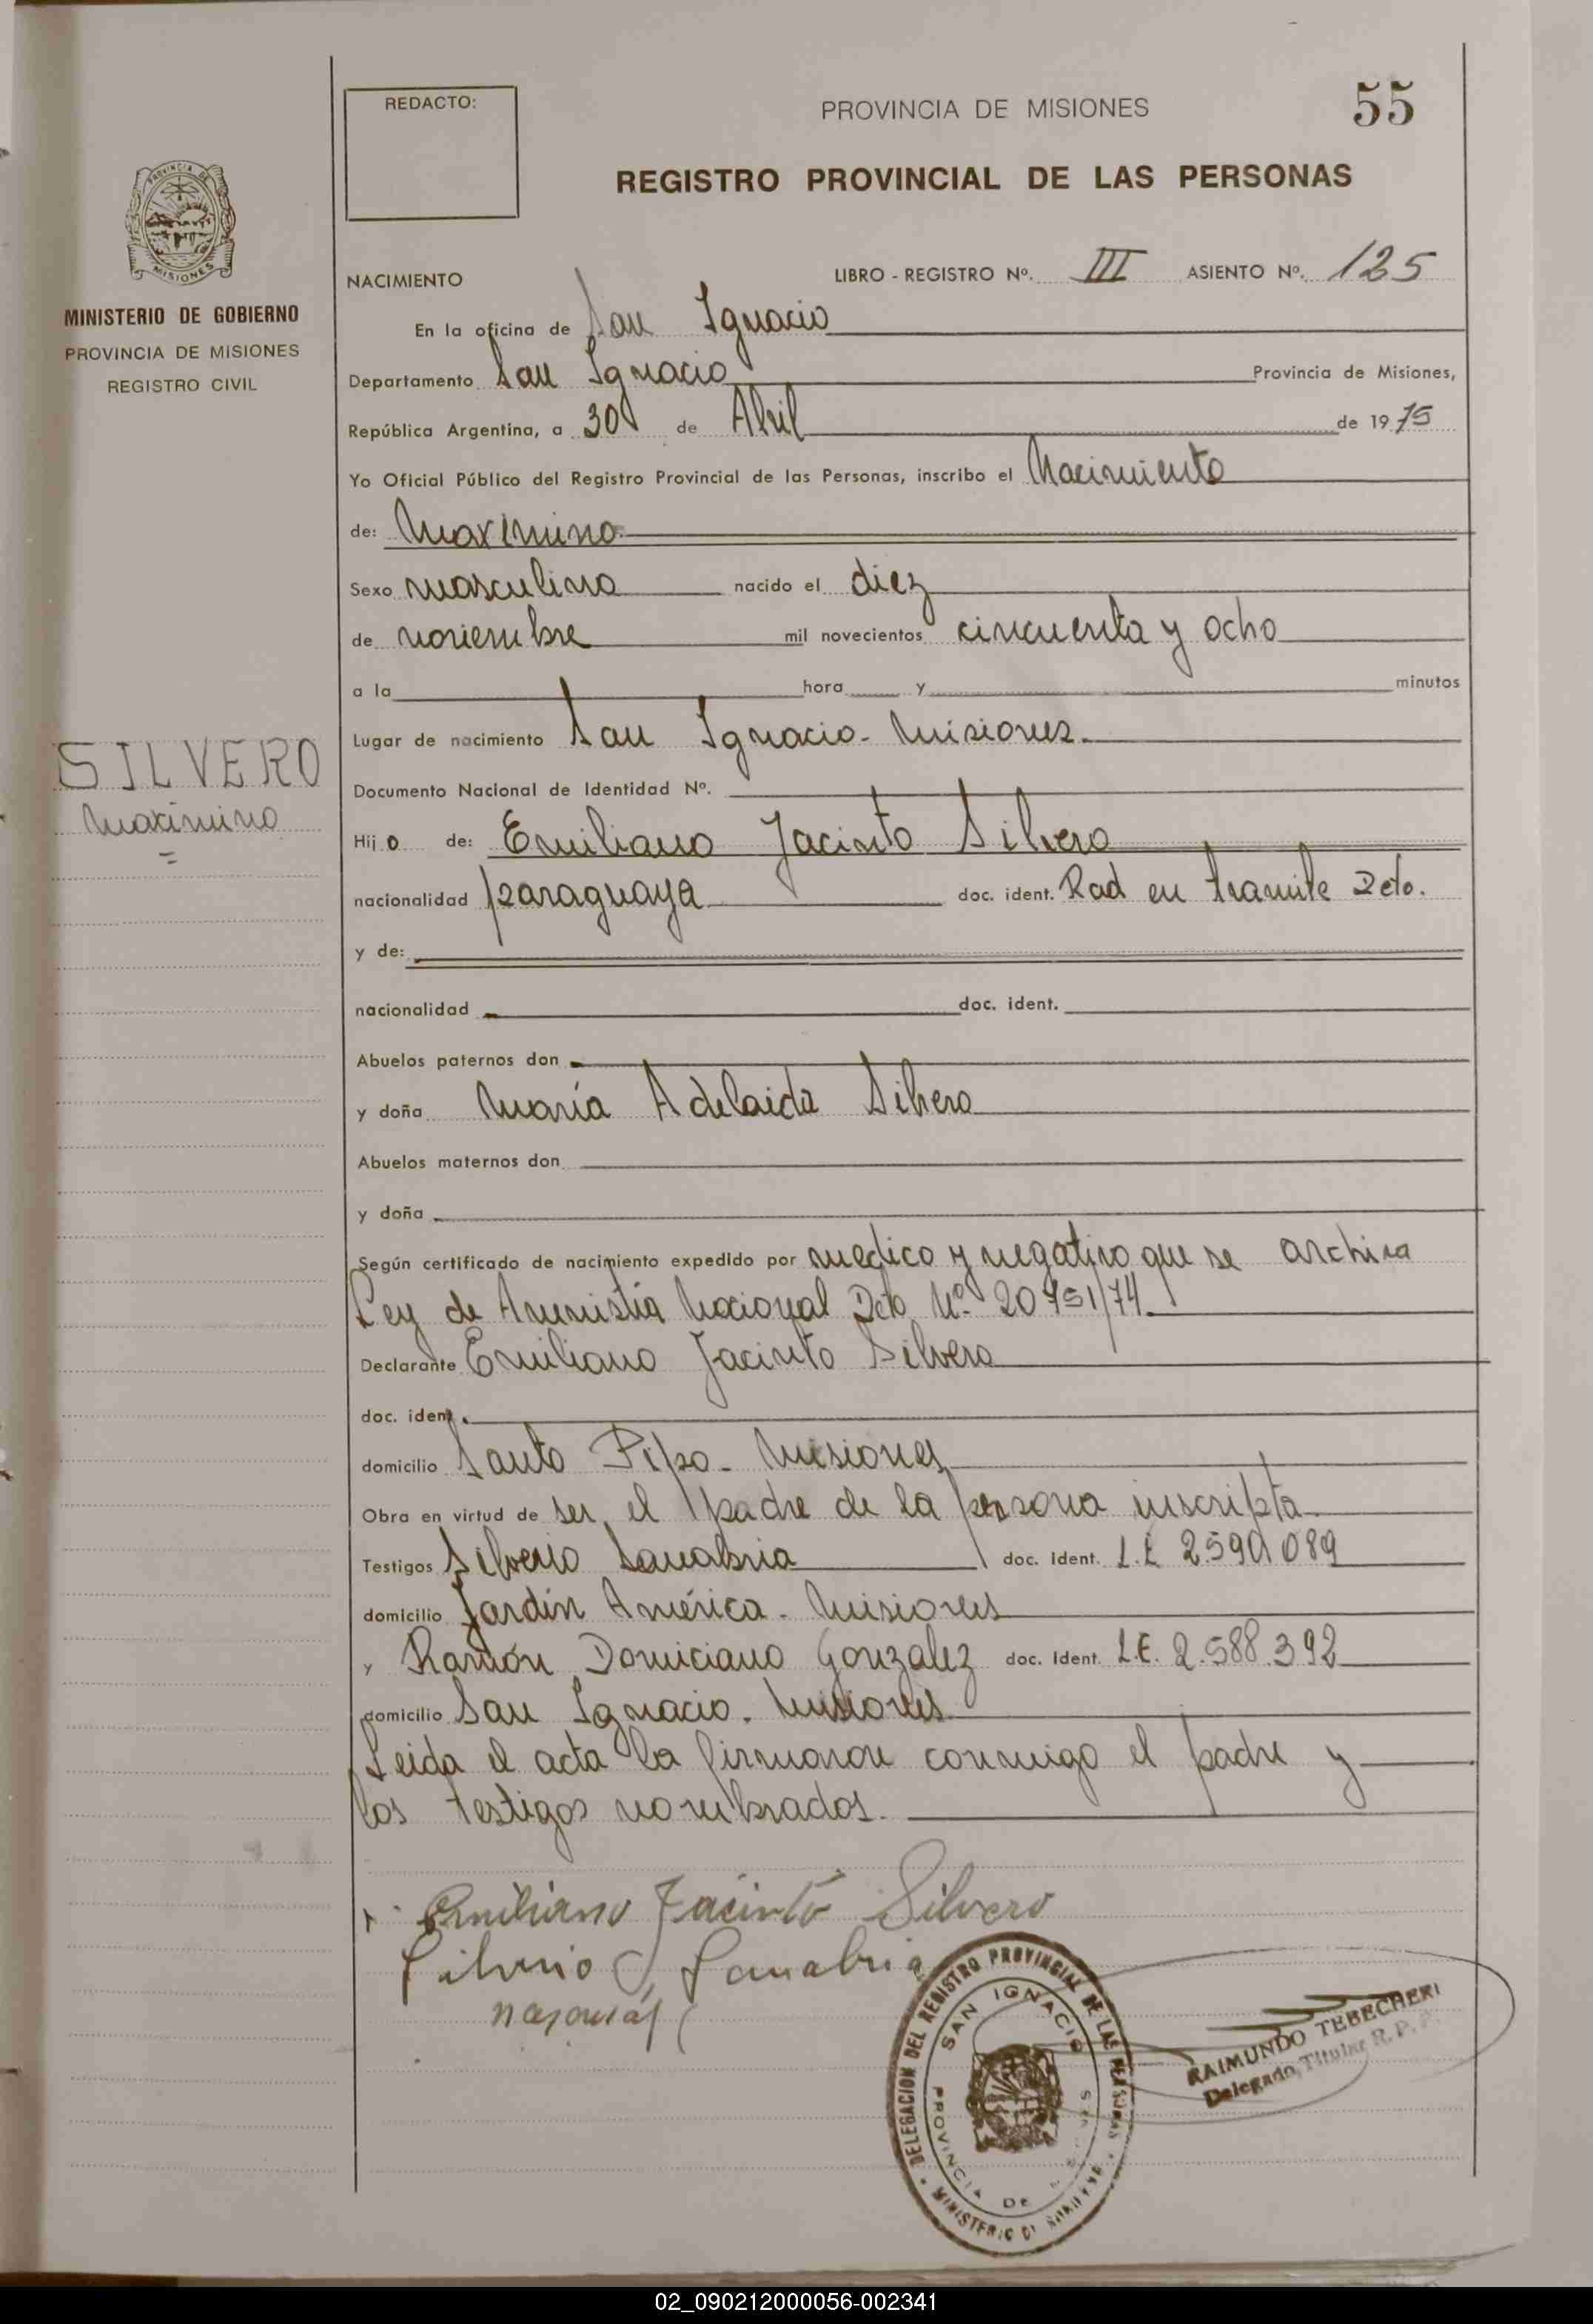 REDACTO:
PROVINCIA DE MISIONES
55
REGISTRO PROVINCIAL DE LAS PERSONAS
PROVINCIA DE
MISIONES
MINISTERIO DE GOBIERNO
PROVINCIA DE MISIONES
REGISTRO CIVIL
NACIMIENTO LIBRO - REGISTRO Nº. III ASIENTO Nº. 125
En la oficina de San Ignacio
Departamento San Ignacio Provincia de Misiones,
República Argentina, a 30 de Abril de 1975
Yo Oficial Público del Registro Provincial de las Personas, inscribo el Nacimiento
de: Maximino
Sexo masculino nacido el diez
de noviembre mil novecientos cincuenta y ocho
a la hora y minutos
Lugar de nacimiento San Ignacio - Misiones.
SILVERO
Maximino
=
Documento Nacional de Identidad Nº.
Hijo de: Emiliano Jacinto Silvero
nacionalidad paraguaya doc. ident. Rad en tramite Dcto.
y de:
nacionalidad doc. ident.
Abuelos paternos don
y doña María Adelaida Silvero
Abuelos maternos don
y doña
Según certificado de nacimiento expedido por medico y negativo que se archiva
Ley de Amnistía Nacional Dcto Nº 20751/74.
Declarante Emiliano Jacinto Silvero
doc. ident.
domicilio Santo Pipo - Misiones
Obra en virtud de ser el padre de la persona inscripta
Testigos Silverio Sanabria doc. Ident. L.E 2.590.089
domicilio Jardín América - Misiones
y Ramón Domiciano Gonzalez doc. Ident. L.E. 2.588.392
domicilio San Ignacio. Misiones.
Leida el acta la firmaron conmigo el padre y
los testigos nombrados.
Emiliano Jacinto Silvero
Silverio Sanabria
DELEGACION DEL REGISTRO PROVINCIAL DE LAS PERSONAS
SAN IGNACIO
PROVINCIA DE
MINISTERIO DE GOBIERNO
RAIMUNDO TEBECHERI
Delegado Titular R. P. P.
02_090212000056-002341